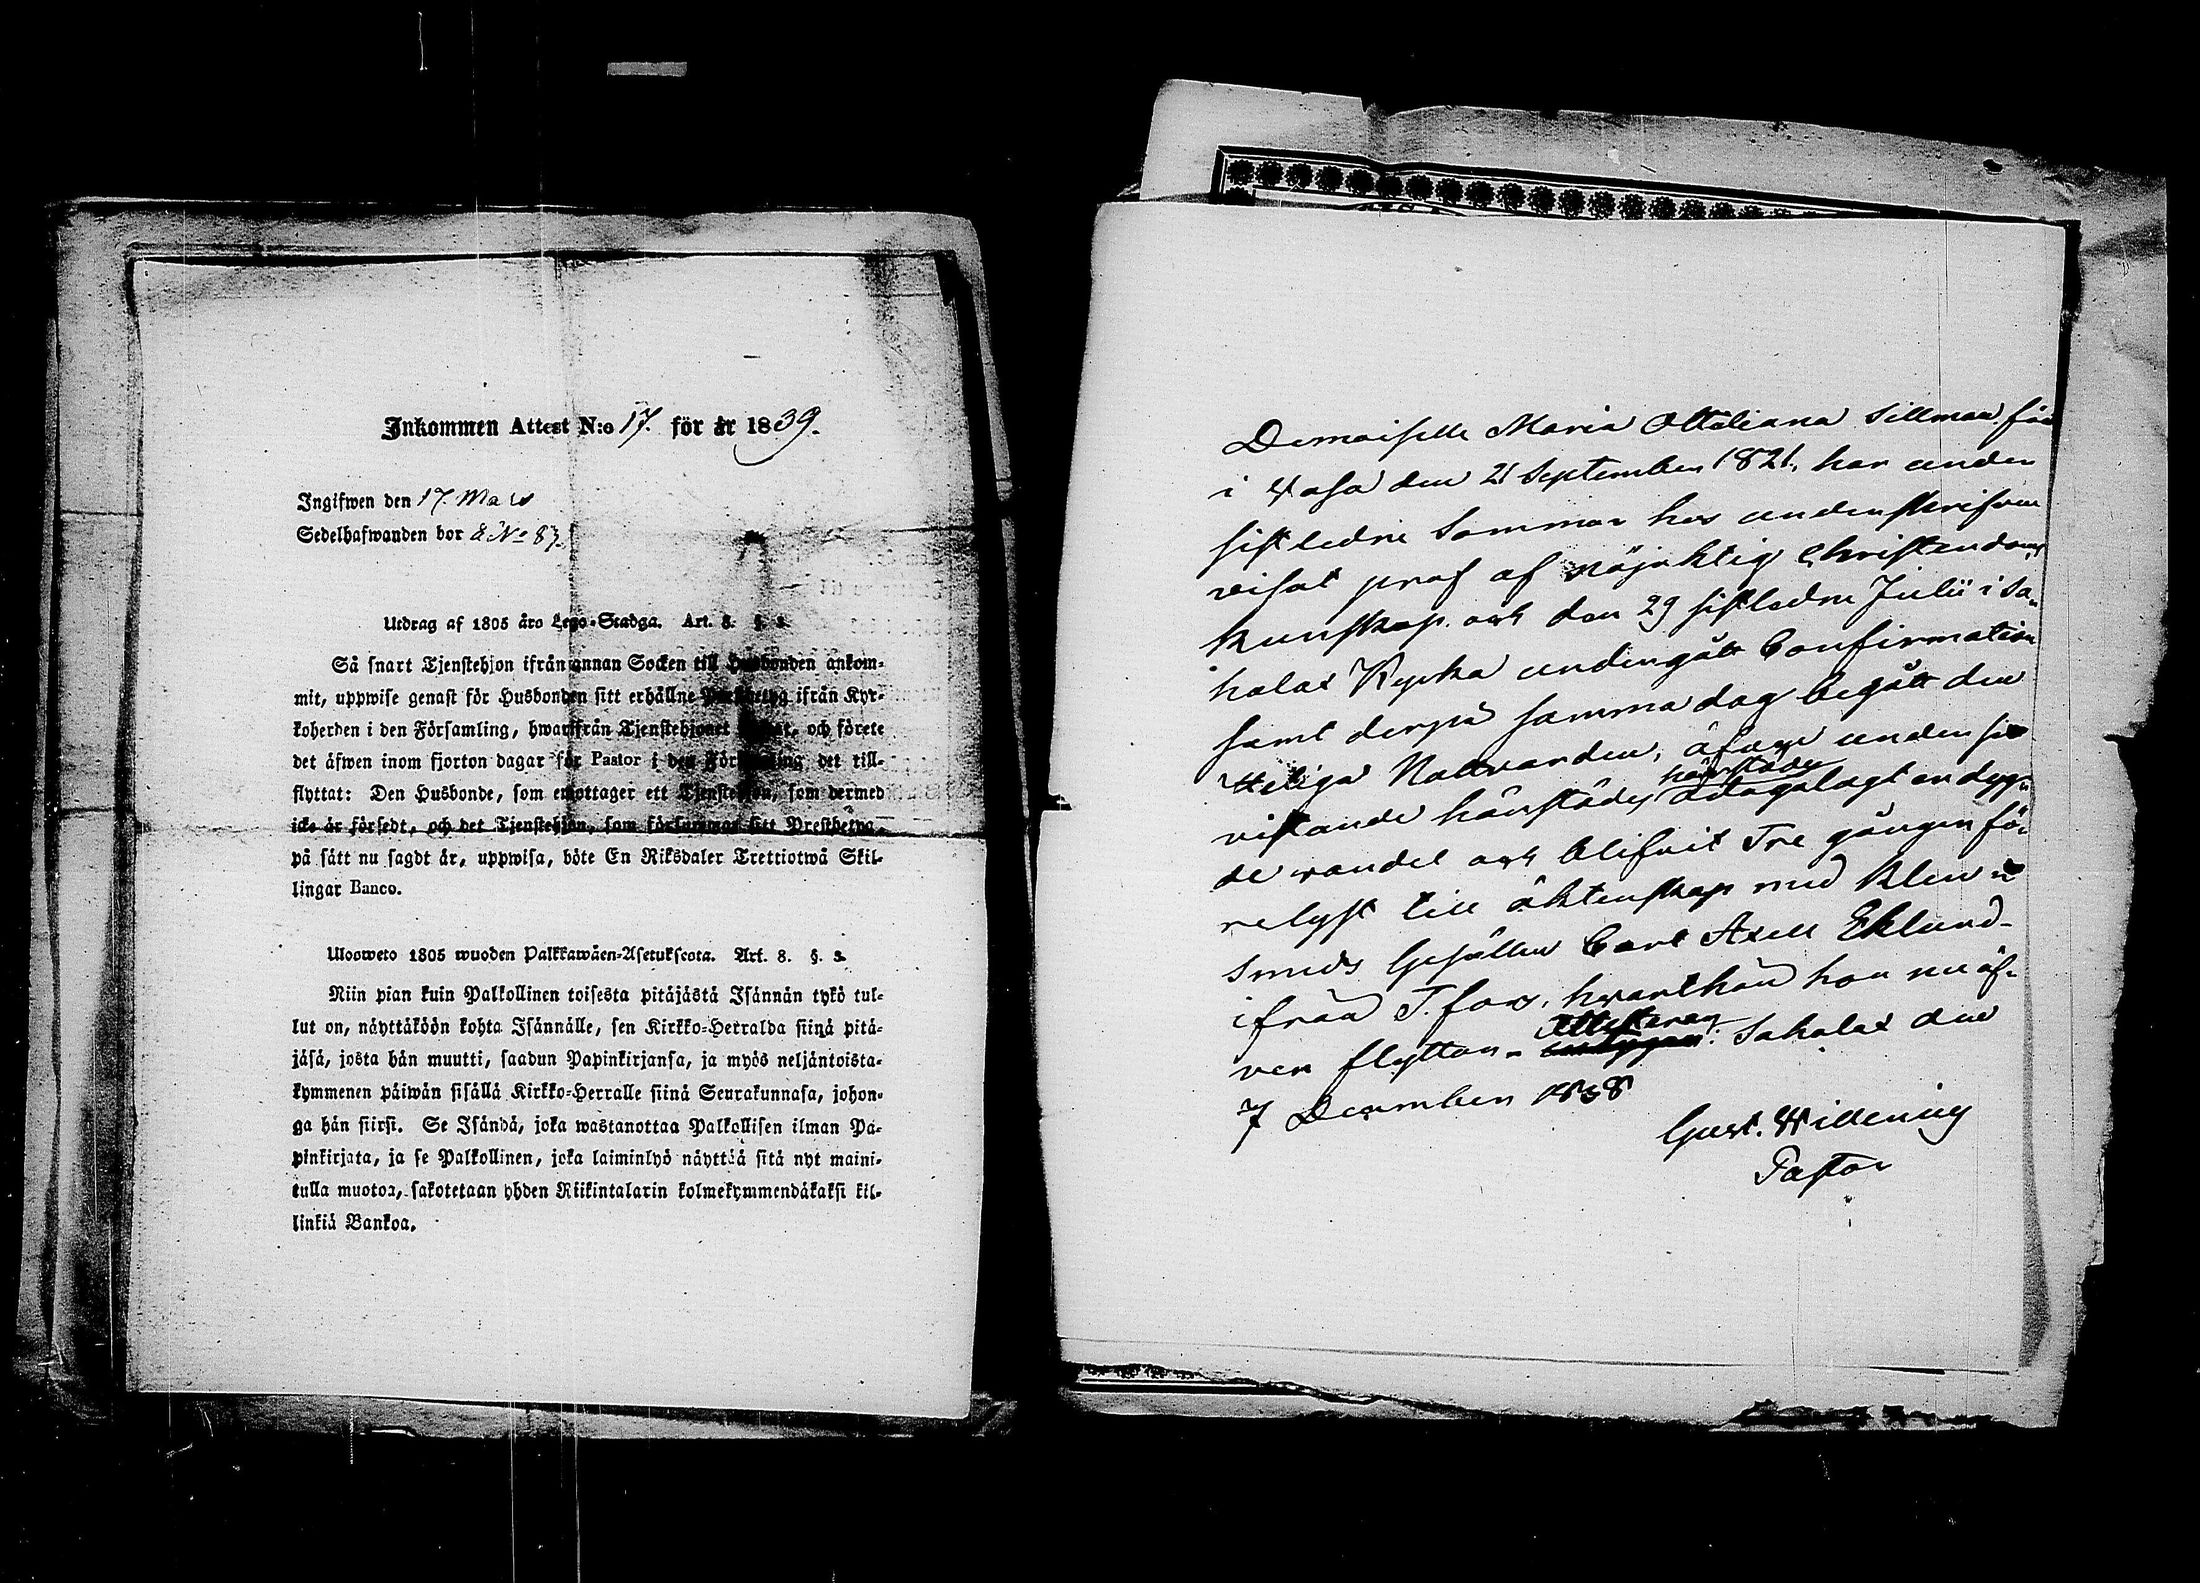 Inkommen Attest N:o 17. för år 1839.
Ingifwen den 17. Mars
Sedelhafwanden bor 2 No 87.
Utdrag af 1805 års Lego-Stadga. Art. 8. §. 2.
Så snart Tjenstehjon ifrån annan Socken till Husbonden ankom-
mit, uppwise genast för Husbonden sitt erhållne Prestbetyg ifrån Kyr-
koherden i den Församling, hwarifrån Tjenstehjonet flyttat, och förete
det äfwen inom fjorton dagar för Pastor i den Församling det till-
flyttat: Den Husbonde, som emottager ett Tjenstehjon, som dermed
icke är försedt, och det Tjenstehjon, som försummar sitt Prestbetyg,
på sätt nu sagdt är, uppwisa, böte En Riksdaler Trettiotwå Skil-
lingar Banco.
Ulosweto 1805 wuoden Palkkawäen-Asetuksesta. Art. 8. §. 2.
Niin pian kuin Palkollinen toisesta pitäjästä Isännän tykö tul-
lut on, näyttäköön kohta Isännälle, sen Kirkko-Herralda siinä pitä-
jäsä, josta hän muutti, saadun Papinkirjansa, ja myös neljäntoista-
kymmenen päiwän sisällä Kirkko-Herralle siinä Seurakunnasa, johon-
ga hän siirsi. Se Isändä, joka wastanottaa Palkollisen ilman Pa-
pinkirjata, ja se Palkollinen, joka laiminlyö näyttää sitä nyt maini-
tulla muotoa, sakotetaan yhden Riikintalarin kolmekymmendäkaksi kil-
linkiä Bankoa.
Demoiselle Maria Ottiliana Sillman föd
i Wasa den 21 September 1821, har under
sistledne Sommar hos underskrifven
visat prof af nöjaktig Christendoms
kunskap och den 29 sistledne Julii i Sa-
halax Kyrka undergått Confirmation
samt derpå samma dag begått den
Heliga Nattvarden, äfven under sin
härstädes
vistande härstädes ådagalagt en dyg-
de vandel och blifvit Tre gånger för
relyst till äktenskap med Klen-
smeds Gesällen Carl Axell Eklund
ifrån T.fors, hvarthän hon nu äf-
ven flyttar. Attesteras: Sahalax den
7 December 1838
Gust. Widening
Pastor